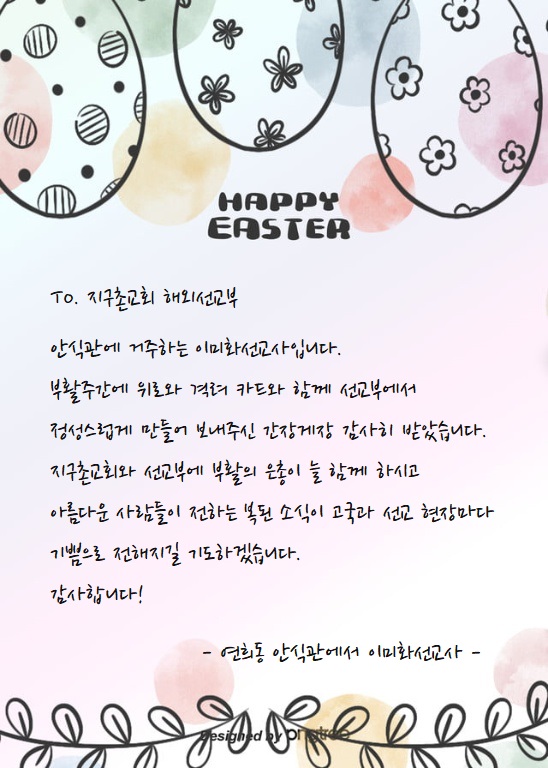 HAPPY
EASTER
To. 지구촌교회 해외선교부
안식관에 거주하는 이미화선교사입니다.
부활주간에 위로와 격려 카드와 함께 선교부에서
정성스럽게 만들어 보내주신 간장게장 감사히 받았습니다.
지구촌교회와 선교부에 부활의 은총이 늘 함께 하시고
아름다운 사람들이 전하는 복된 소식이 고국과 선교 현장마다
기쁨으로 전해지길 기도하겠습니다.
감사합니다!
- 연희동 안식관에서 이미화선교사 -
Designed by